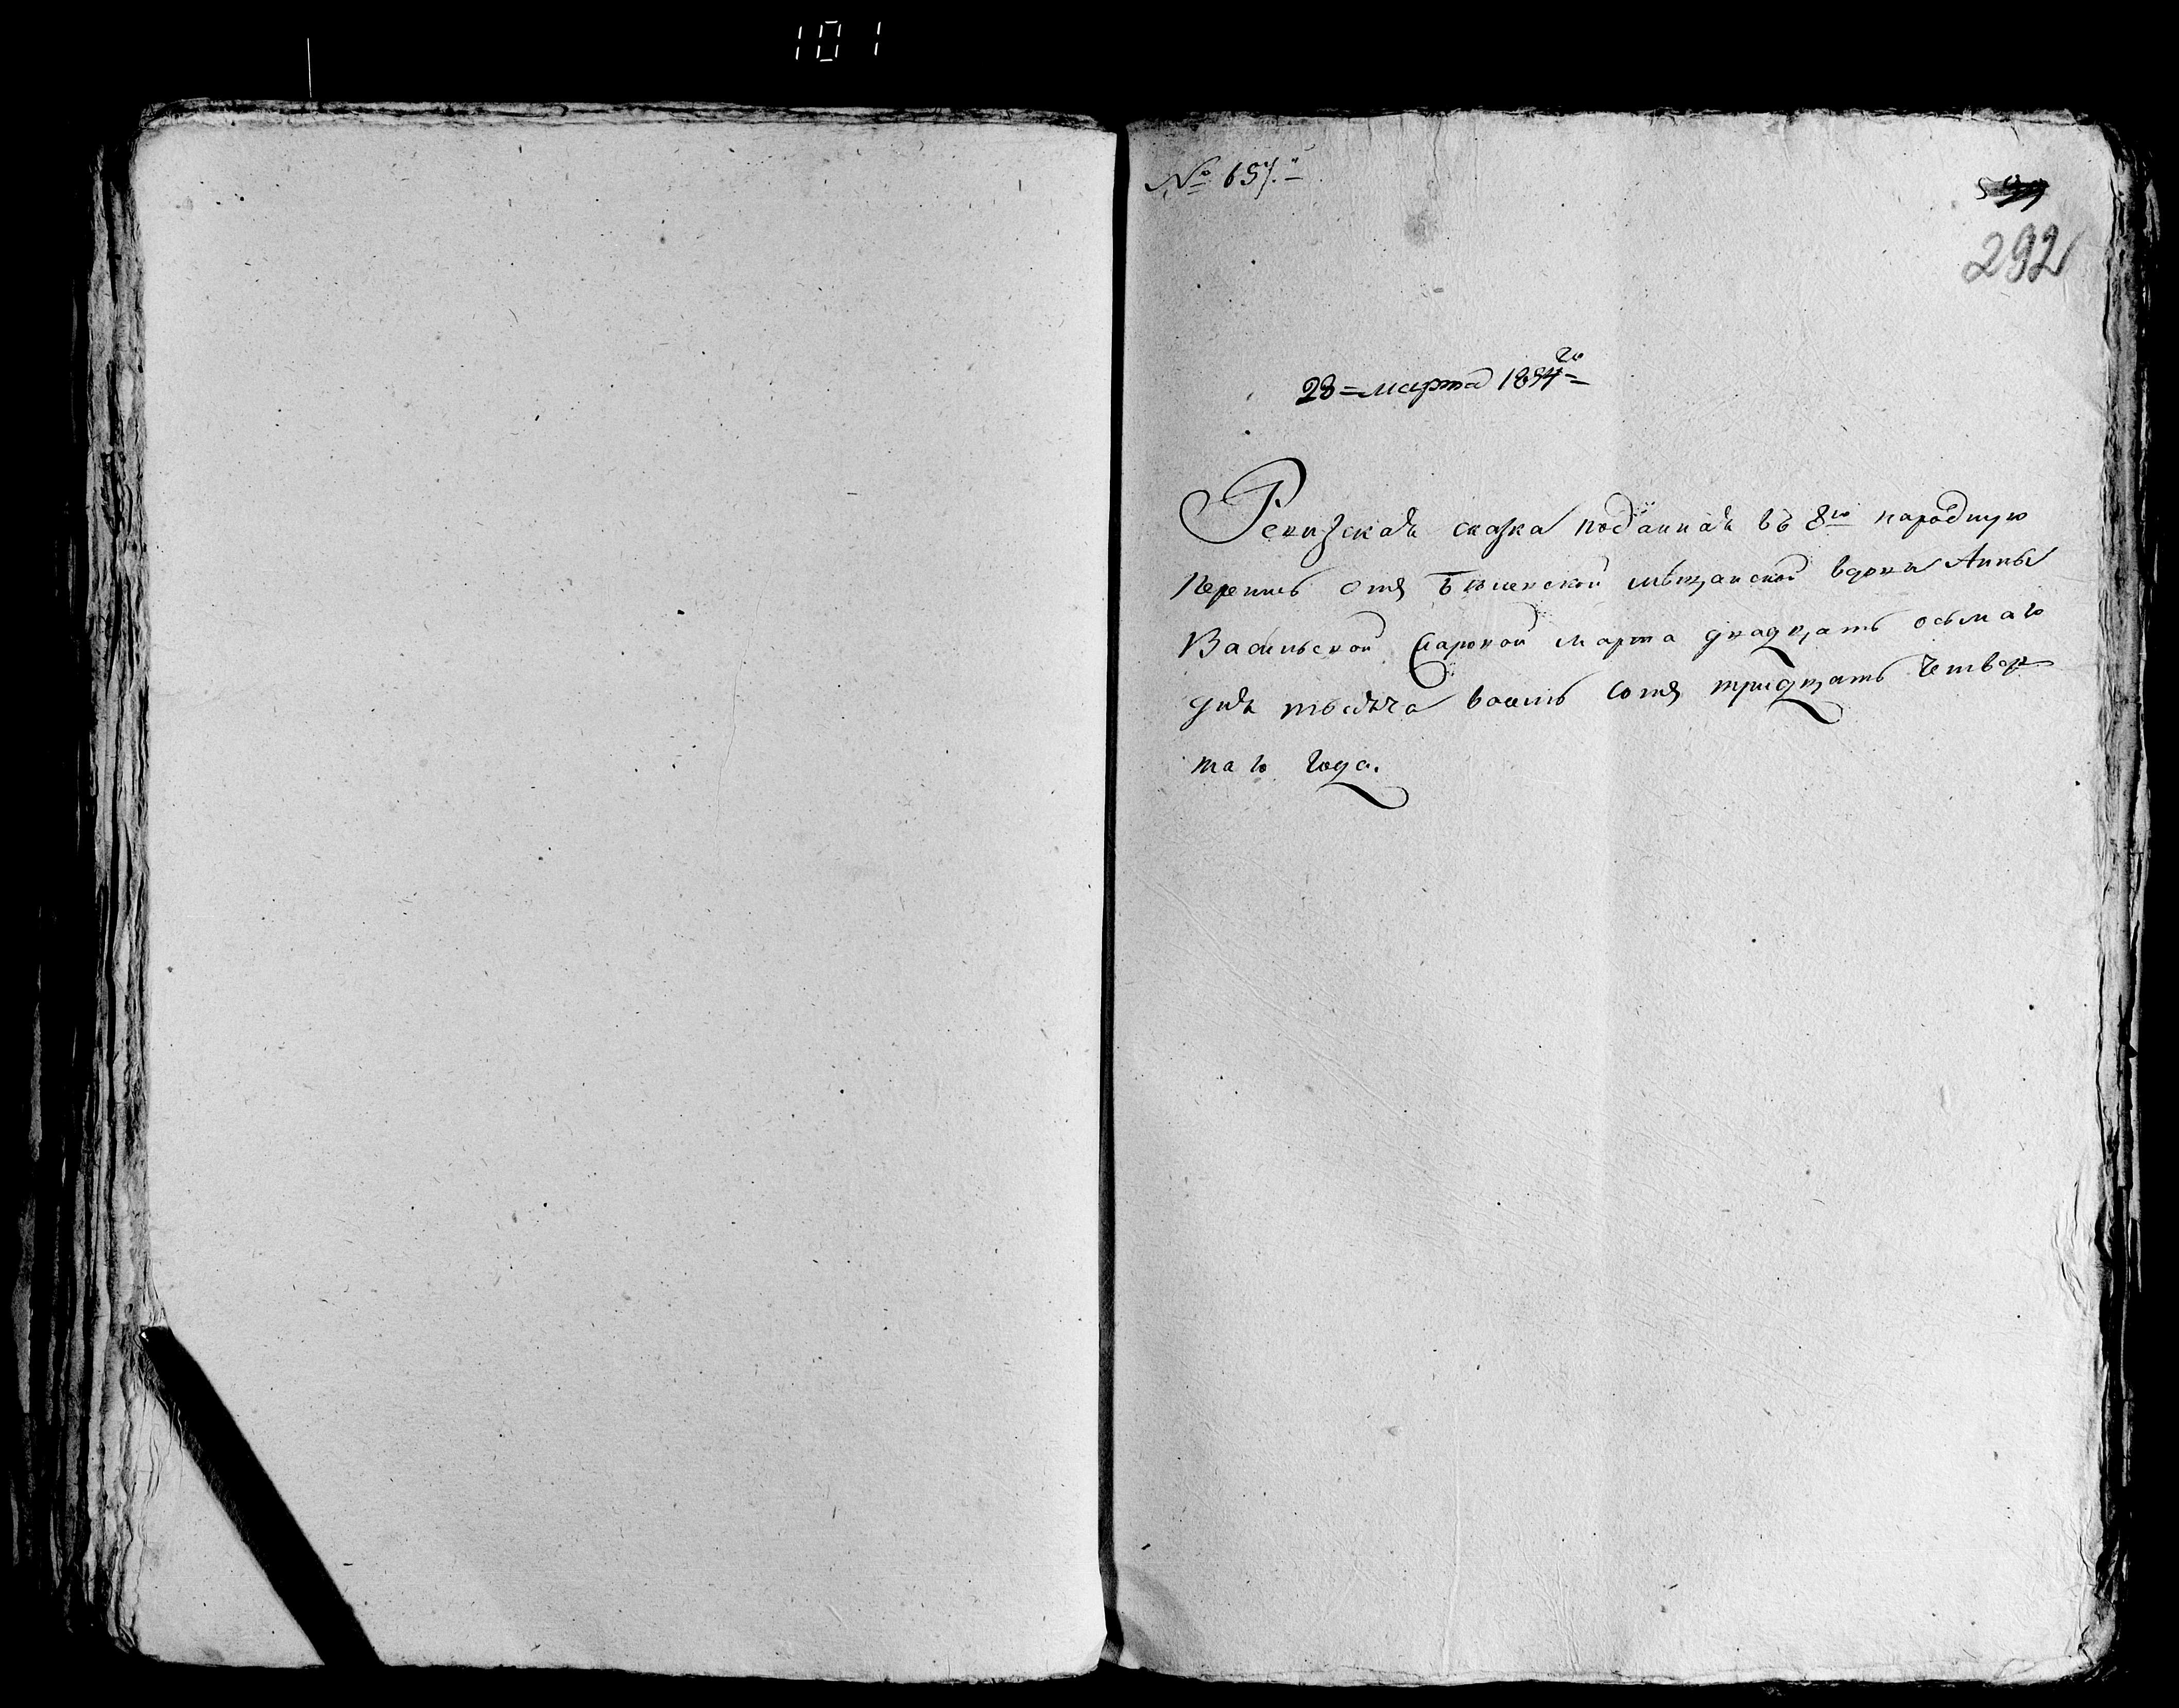 101
№ 657.
292
28 = марта 1834го =
Ревизская сказка поданная въ 8ю народную
перепись отъ мѣщанской вдовы Анны
Васильевой марта двадцать осмаго
дня тысяча восемь сотъ тридцать четвер
таго года.